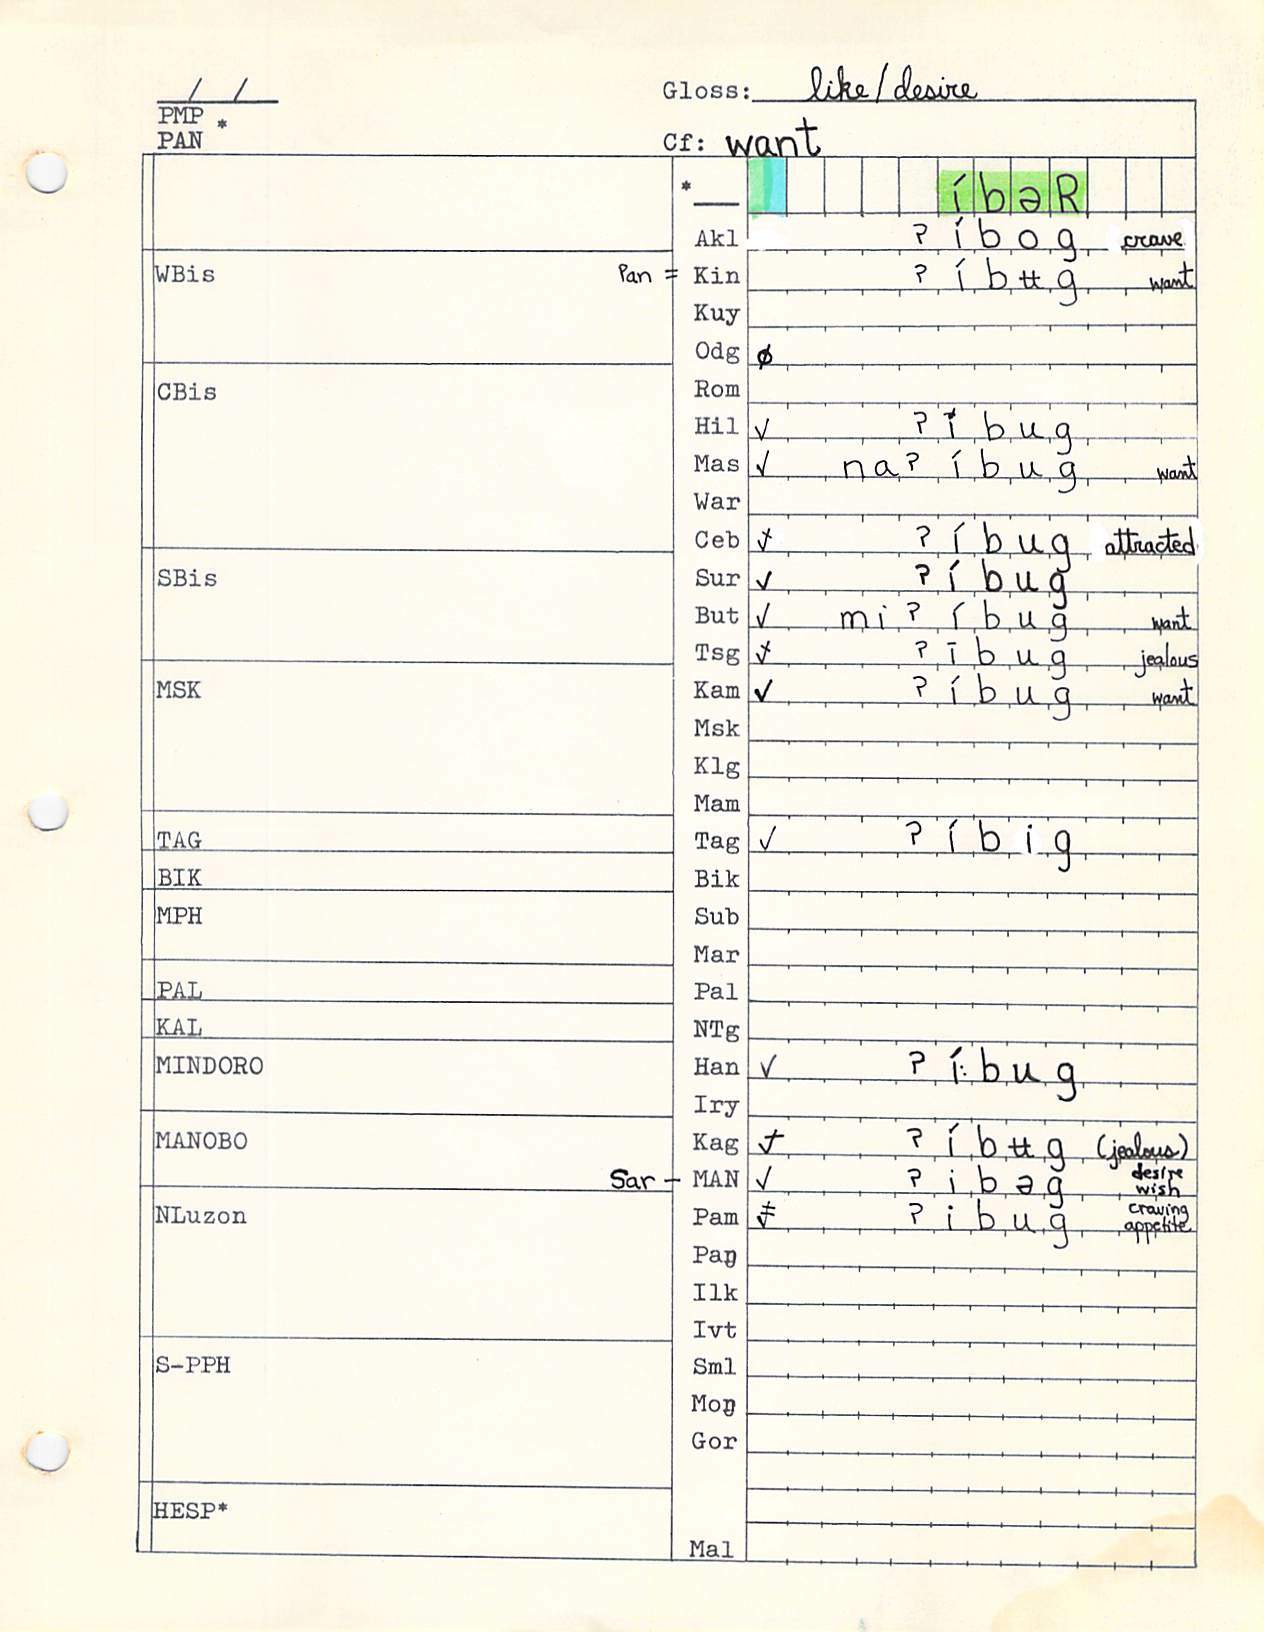 / / Gloss: like/desire
PMP *
PAN Cf: want
* íbəR
Akl ʔíbog crave
WBis Pan = Kin ʔíbʉg want
Kuy
Odg ∅
Rom
CBis
Hil ✓ ʔíbug
Mas ✓ naʔíbug want
War
Ceb ✓ ʔíbug attracted
SBis Sur ✓ ʔíbug
But ✓ miʔíbug want
Tsg ✓ ʔībug jealous
MSK Kam ✓ ʔíbug want
Msk
Klg
Mam
TAG Tag ✓ ʔíbig
BIK Bik
MPH Sub
Mar
PAL Pal
KAL NTg
MINDORO Han ✓ ʔí:bug
Iry
MANOBO Kag ✓ ʔíbʉg (jealous)
Sar - MAN ✓ ʔibəg desire wish
NLuzon Pam ʔibug craving appetite
Paŋ
Ilk
Ivt
S-PPH Sml
Moŋ
Gor
HESP*
Mal